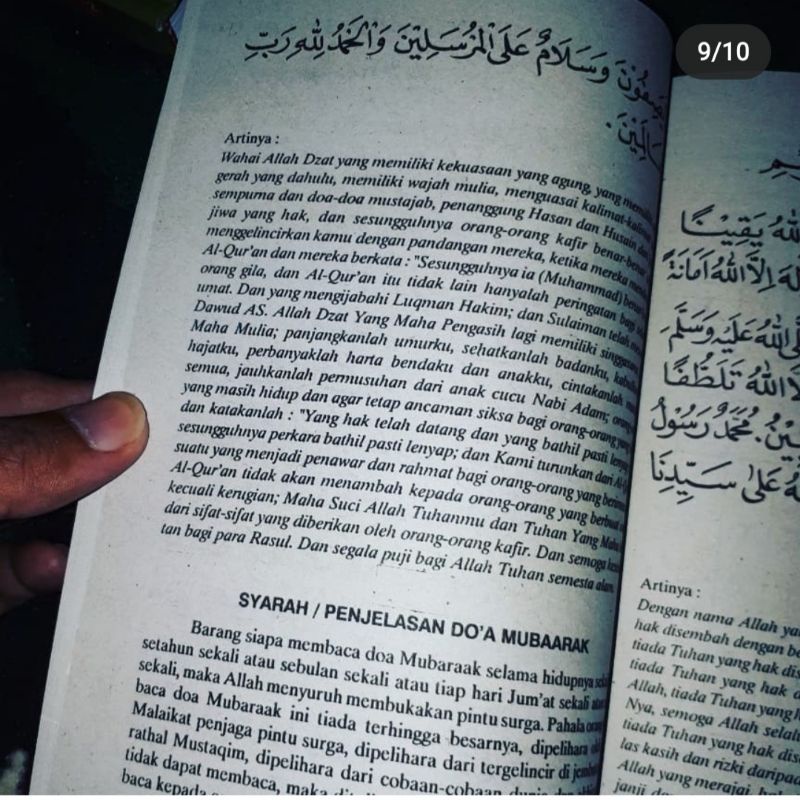 9/10
يَصِفُوْنَ وَسَلَامٌ عَلَى الْمُرْسَلِيْنَ وَالْحَمْدُ لِلّٰهِ رَبِّ
الْعَالَمِيْنَ.
Artinya :
Wahai Allah Dzat yang memiliki kekuasaan yang agung, yang
gerah yang dahulu, memiliki wajah mulia, menguasai kalimat-kalimat
sempurna dan doa-doa mustajab, penanggung Hasan dan Husain
jiwa yang hak, dan sesungguhnya orang-orang kafir benar-benar
menggelincirkan kamu dengan pandangan mereka, ketika mereka
Al-Qur'an dan mereka berkata : "Sesungguhnya ia (Muhammad)
orang gila, dan Al-Qur'an itu tidak lain hanyalah peringatan bagi
umat. Dan yang mengijabahi Luqman Hakim; dan Sulaiman telah
Dawud AS. Allah Dzat Yang Maha Pengasih lagi memiliki
Maha Mulia; panjangkanlah umurku, sehatkanlah badanku,
hajatku, perbanyaklah harta bendaku dan anakku, cintakanlah
semua, jauhkanlah permusuhan dari anak cucu Nabi Adam;
yang masih hidup dan agar tetap ancaman siksa bagi orang-orang
dan katakanlah : "Yang hak telah datang dan yang bathil pasti
sesungguhnya perkara bathil pasti lenyap; dan Kami turunkan dari
suatu yang menjadi penawar dan rahmat bagi orang-orang yang
Al-Qur'an tidak akan menambah kepada orang-orang yang
kecuali kerugian; Maha Suci Allah Tuhanmu dan Tuhan Yang
dari sifat-sifat yang diberikan oleh orang-orang kafir. Dan semoga
tan bagi para Rasul. Dan segala puji bagi Allah Tuhan semesta alam.
SYARAH / PENJELASAN DO'A MUBAARAK
Barang siapa membaca doa Mubaraak selama hidupnya
setahun sekali atau sebulan sekali atau tiap hari Jum'at sekali
sekali, maka Allah menyuruh membukakan pintu surga. Pahala
baca doa Mubaraak ini tiada terhingga besarnya, dipelihara
Malaikat penjaga pintu surga, dipelihara dari tergelincir di
rathal Mustaqim, dipelihara dari cobaan-cobaan
tidak dapat membaca, maka
baca kepada
اللّٰهُ يَقِيْنًا
إِلَّا اللّٰهُ أَمَانَةً
اللّٰهُ عَلَيْهِ وَسَلَّمَ
اللّٰهُ تَلَطُّفًا
مُحَمَّدٌ رَسُوْلُ
عَلٰى سَيِّدِنَا
Artinya :
Dengan nama Allah
hak disembah dengan
tiada Tuhan yang hak
tiada Tuhan yang hak
Allah, tiada Tuhan yang
Nya, semoga Allah
tiada Tuhan yang hak
las kasih dan rizki
Allah yang merajai,
janji